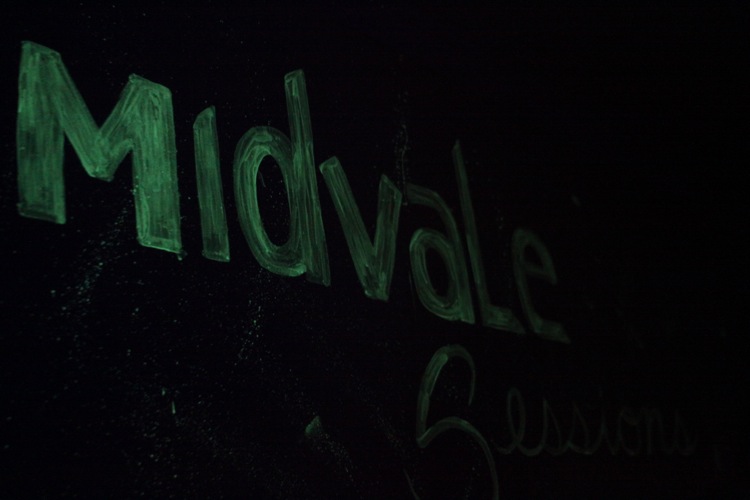 Midvale
Sessions